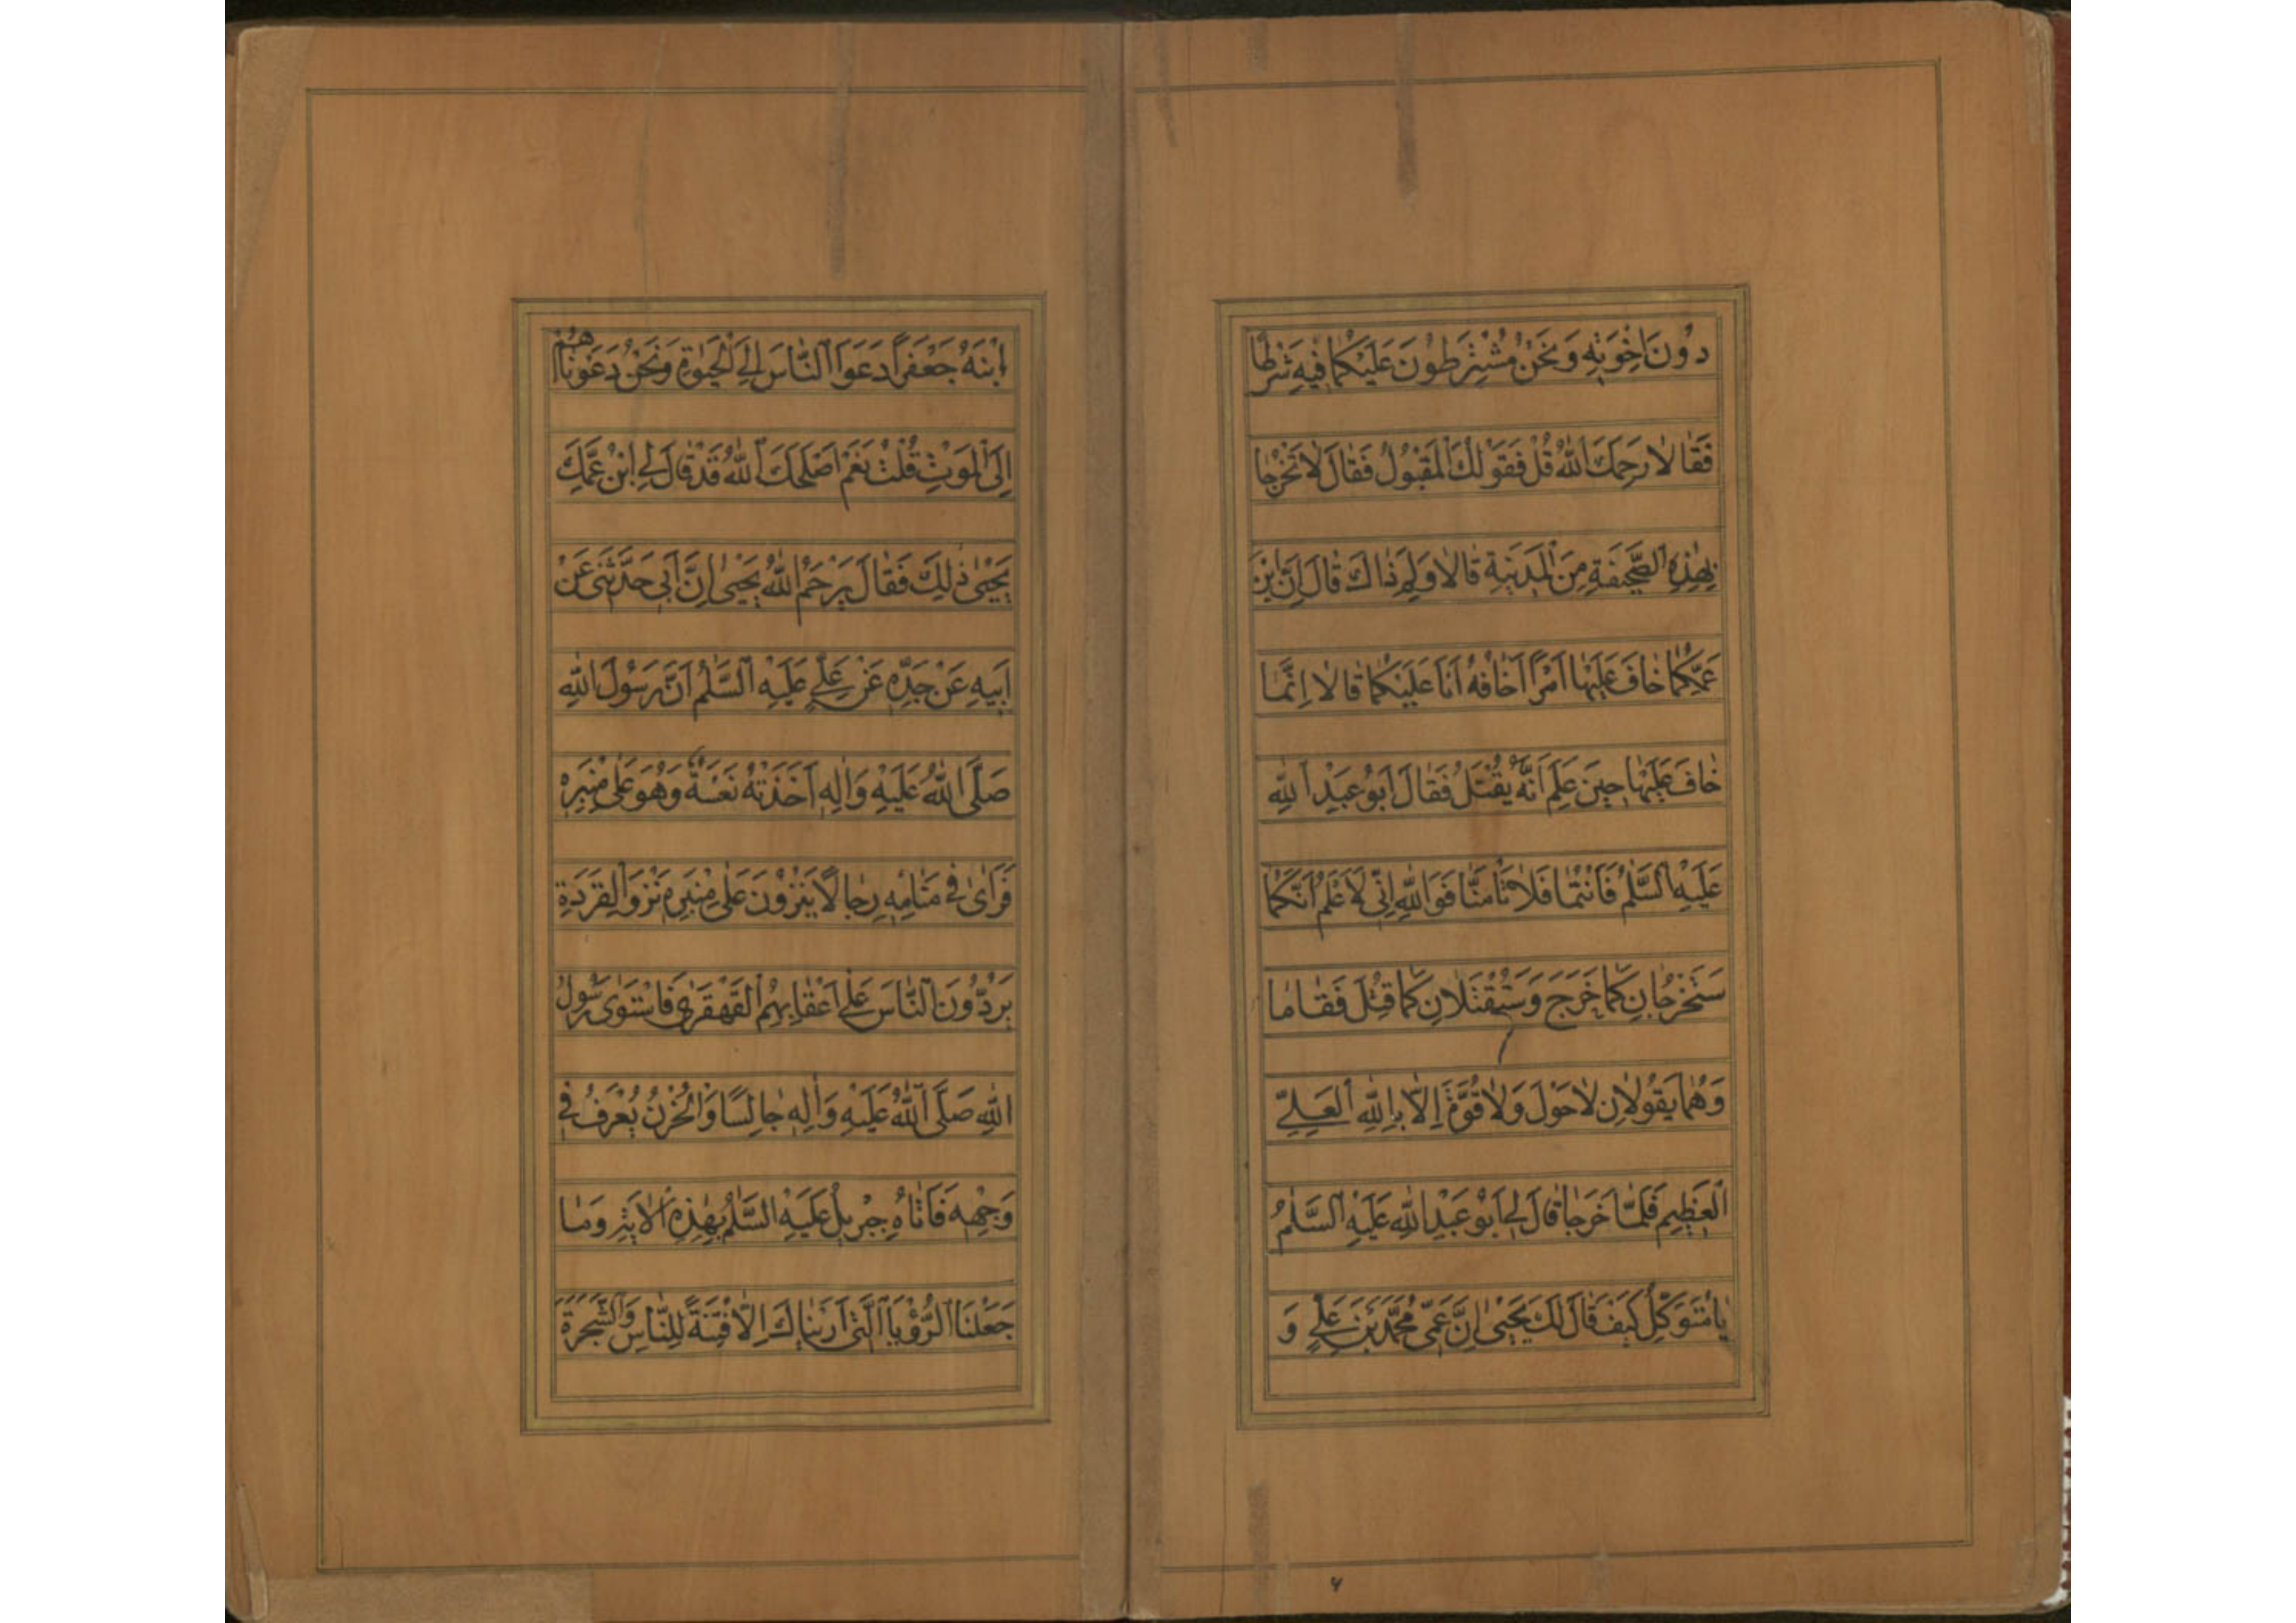 دُونَ اِخْوَتِهِ وَنَحْنُ مُشْتَرِطُونَ عَلَيْكُمَا فِيهِ شَرْطًا
فَقٰالاٰ رَحِمَكَ اللّٰهُ قُلْ فَقَوْلُكَ الْمَقْبُولُ فَقٰالَ لاٰ تَخْرُجٰا
بِهٰذِهِ الصَّحِيفَةِ مِنَ الْمَدِينَةِ قٰالاٰ وَلِمَ ذٰاكَ قٰالَ اِنَّ ابْنَ
عَمِّكُمٰا خٰافَ عَلَيْهٰا اَمْرًا اَخٰافُهُ اَنَا عَلَيْكُمٰا قٰالاٰ اِنَّمٰا
خٰافَ عَلَيْهٰا حِينَ عَلِمَ اَنَّهُ يُقْتَلُ فَقٰالَ اَبُو عَبْدِ اللّٰهِ
عَلَيْهِ السَّلٰمُ فَاَنْتُمٰا فَلاٰ تَأْمَنٰا فَوَاللّٰهِ اِنِّي لَاَعْلَمُ اَنَّكُمٰا
سَتَخْرُجٰانِ كَمٰا خَرَجَ وَسَتُقْتَلاٰنِ كَمٰا قُتِلَ فَقٰامٰا
وَهُمٰا يَقُولاٰنِ لاٰحَوْلَ وَلاٰ قُوَّةَ اِلاّٰ بِاللّٰهِ الْعَلِيِّ
الْعَظِيمِ فَلَمّٰا خَرَجٰا قٰالَ لِي اَبُو عَبْدِ اللّٰهِ عَلَيْهِ السَّلٰمُ
يٰا مُتَوَكِّلُ كَيْفَ قٰالَ لَكَ يَحْيىٰ اِنَّ عَمِّي مُحَمَّدَ بْنَ عَلِيٍّ وَ
۶
اِبْنَهُ جَعْفَرًا دَعَوَا النّٰاسَ اِلَى الْحَيٰوةِ وَنَحْنُ دَعَوْنٰاهُمْ
اِلَى الْمَوْتِ قُلْتُ نَعَمْ اَصْلَحَكَ اللّٰهُ قَدْ قٰالَ لِي ابْنُ عَمِّكَ
يَحْيىٰ ذٰلِكَ فَقٰالَ يَرْحَمُ اللّٰهُ يَحْيىٰ اِنَّ اَبِي حَدَّثَنِي عَنْ
اَبِيهِ عَنْ جَدِّهِ عَنْ عَلِيٍّ عَلَيْهِ السَّلٰمُ اَنَّ رَسُولَ اللّٰهِ
صَلَّى اللّٰهُ عَلَيْهِ وَاٰلِهِ اَخَذَتْهُ نَعْسَةٌ وَهُوَ عَلىٰ مِنْبَرِهِ
فَرَاىٰ فِي مَنٰامِهِ رِجٰالًا يَنْزُونَ عَلىٰ مِنْبَرِهِ نَزْوَ الْقِرَدَةِ
يَرُدُّونَ النّٰاسَ عَلىٰ اَعْقٰابِهِمُ الْقَهْقَرىٰ فَاسْتَوىٰ رَسُولُ
اللّٰهِ صَلَّى اللّٰهُ عَلَيْهِ وَاٰلِهِ جٰالِسًا وَالْحُزْنُ يُعْرَفُ فِي
وَجْهِهِ فَاَتٰاهُ جِبْرِيلُ عَلَيْهِ السَّلٰمُ بِهٰذِهِ الْاٰيَةِ وَمٰا
جَعَلْنَا الرُّؤْيَا الَّتِي اَرَيْنٰاكَ اِلاّٰ فِتْنَةً لِلنّٰاسِ وَالشَّجَرَةَ